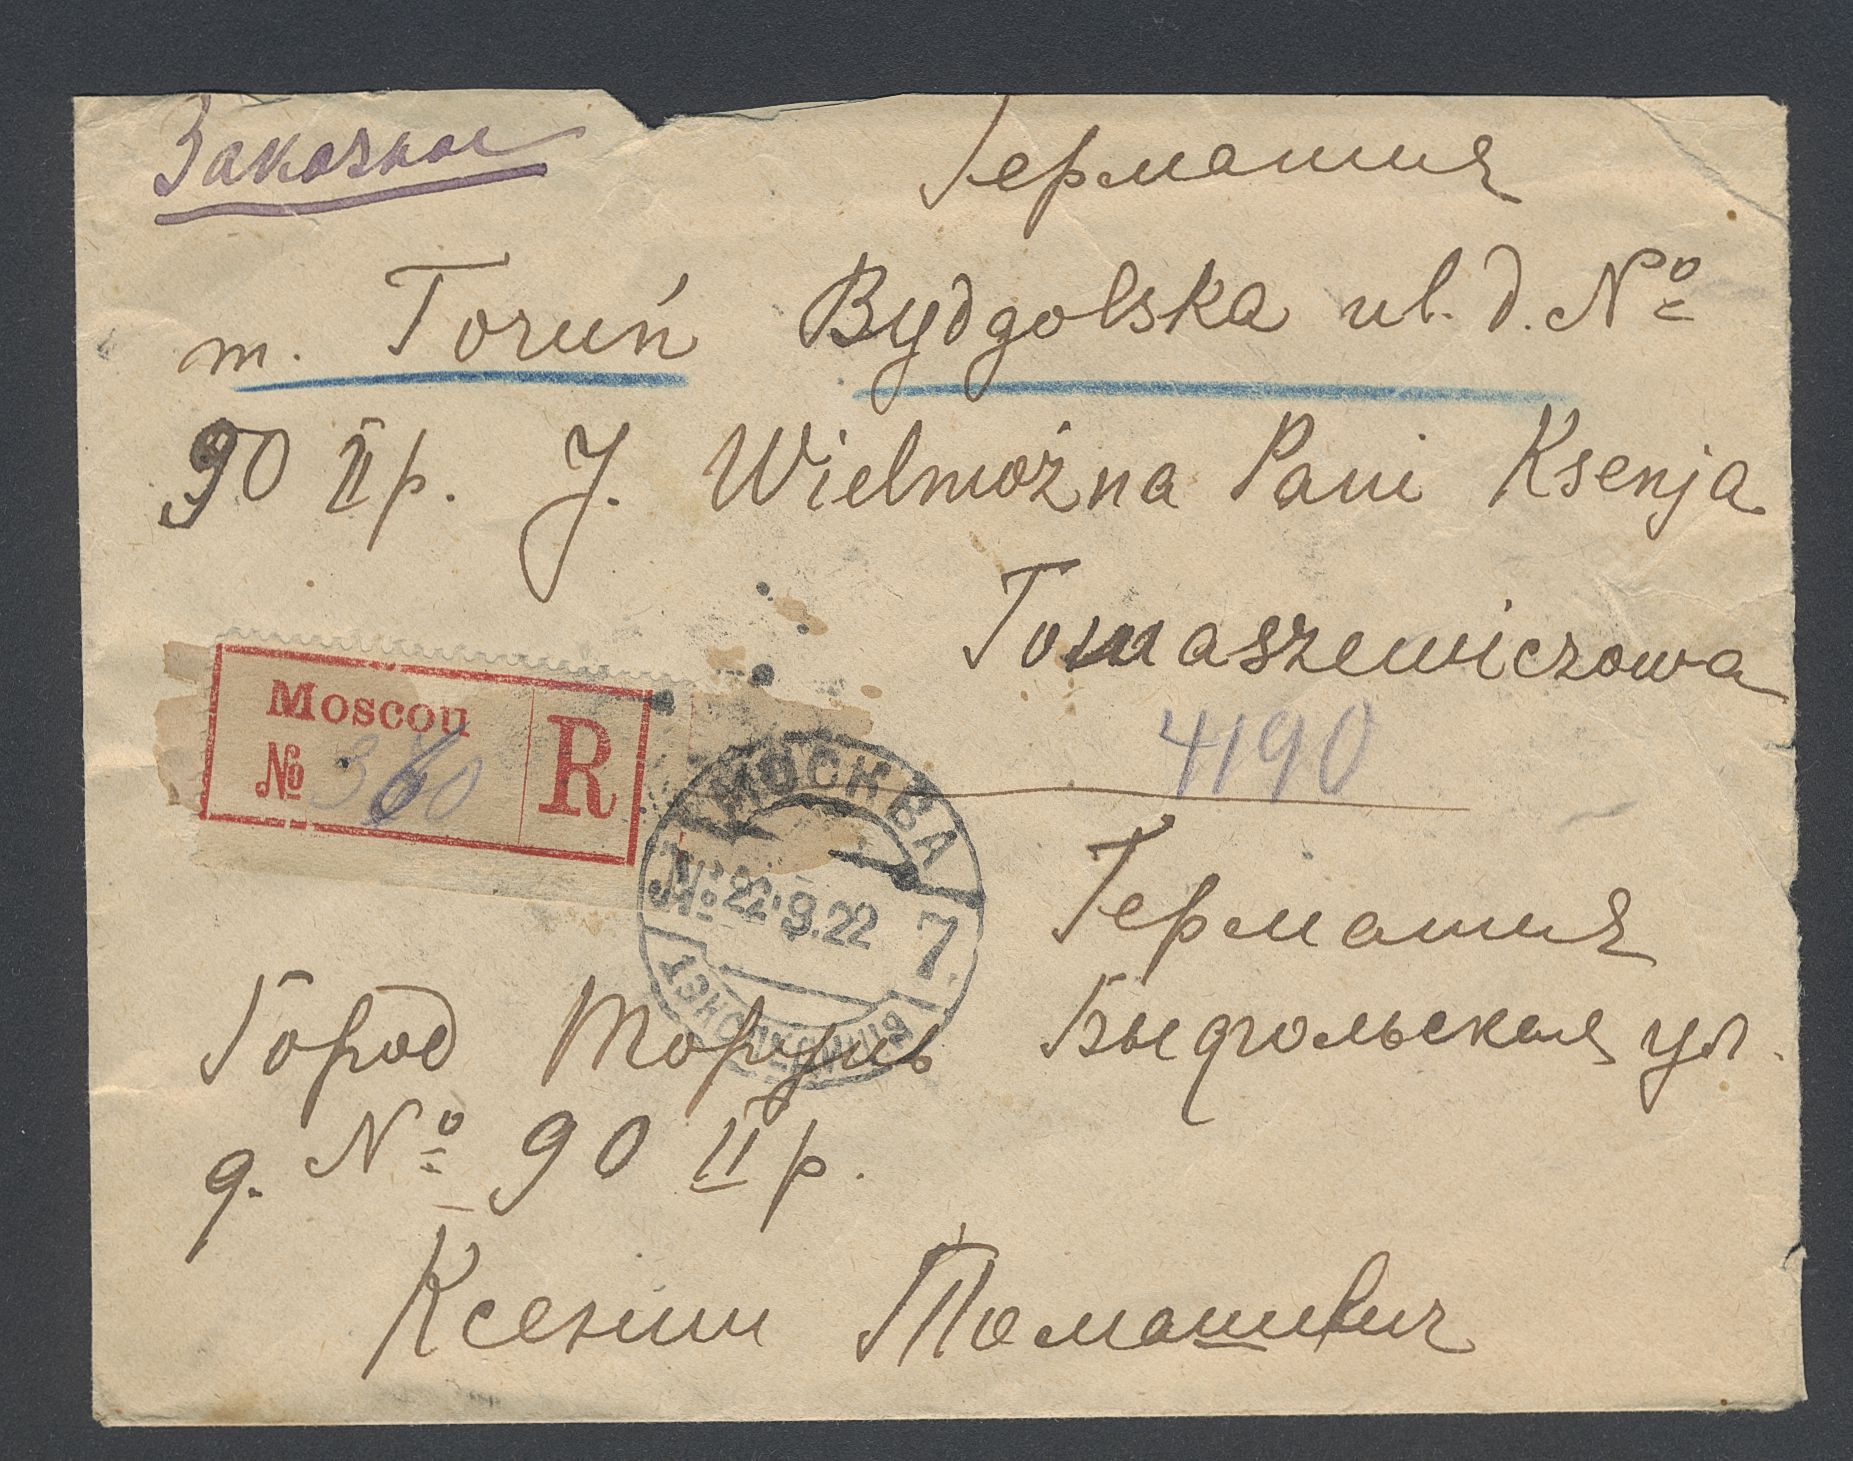 Заказное
Германия
m. Toruń Bydgolska ul. d. Nº
90 II p. J. Wielmożna Pani Ksenja
Tomaszewiczowa
Moscou
№ 360
R
4190
МОСКВА
№ 22.9.22 7.
ЭКСПЕДИЦИЯ
Германия
Город Торунь Быдгольская ул.
д. Nº 90 II p.
Ксении Томашевич